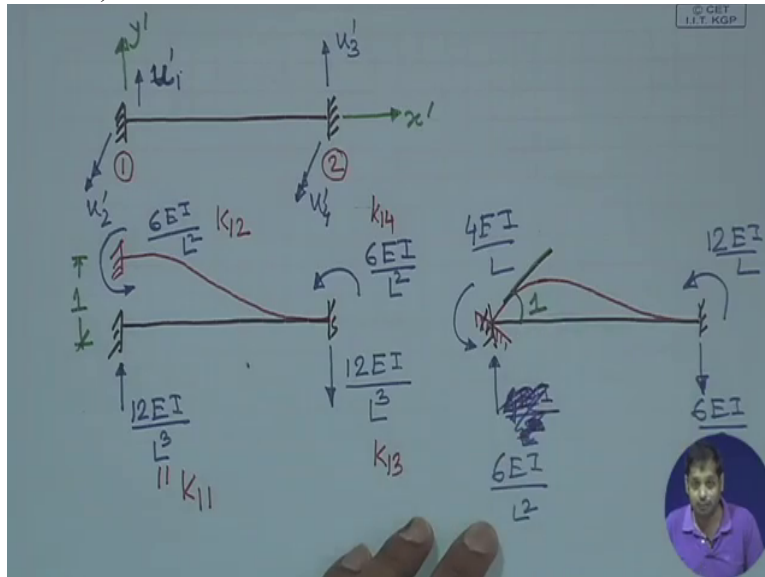 © CET
I.I.T. KGP
y'
u'₁
u'₃
x'
①
②
u'₂
u'₄
6EI/L² K₁₂
K₁₄
6EI/L²
1
12EI/L³
" K₁₁
12EI/L³
K₁₃
4EI/L
1
12EI/L
6EI/L²
6EI